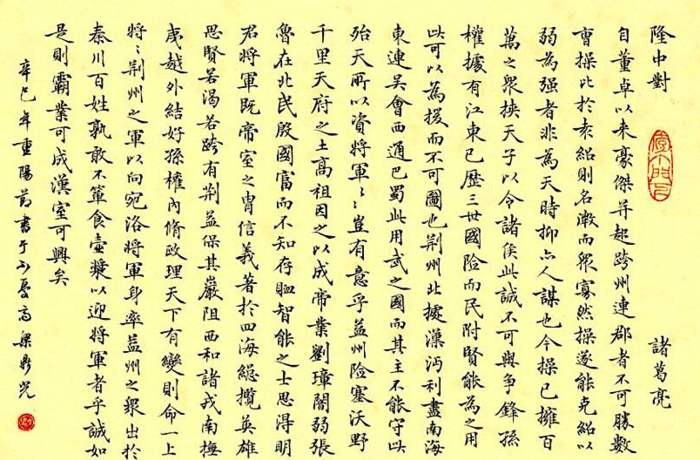 隆中對
諸葛亮
自董卓以来豪傑并起跨州連郡者不可勝數
曹操比於袁紹則名微而衆寡然操遂能克紹以
弱為强者非為天時抑亦人謀也今操已擁百
萬之衆挾天子以令諸侯此誠不可與争鋒孫
權據有江東已歷三世國險而民附賢能為之用
此可以為援而不可圖也荆州北據漢沔利盡南海
東連吳會西通巴蜀此用武之國而其主不能守此
殆天所以資將軍〻〻豈有意乎益州險塞沃野
千里天府之土高祖因之以成帝業劉璋闇弱張
魯在北民殷國富而不知存恤智能之士思得明
君將軍既帝室之胄信義著於四海總攬英雄
思賢若渴若跨有荆益保其巖阻西和諸戎南撫
夷越外結好孫權内脩政理天下有變則命一上
將〻荆州之軍以向宛洛將軍身率益州之衆出於
秦川百姓孰敢不簞食壺漿以迎將軍者乎誠如
是則霸業可成漢室可興矣
辛巳年重陽節書于